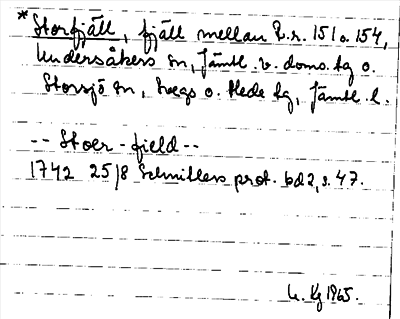 *Storfjäll, fjäll mellan R.r. 151 o. 154,
Undersåkers sn, Jämtl. v. doms. tg o.
Storsjö sn, Svegs o. Hede tg, Jämtl. l.
-- Stoer-field --
1742 25/8 Schnitlers prot. bd 2, s. 47.
Kg 1965.